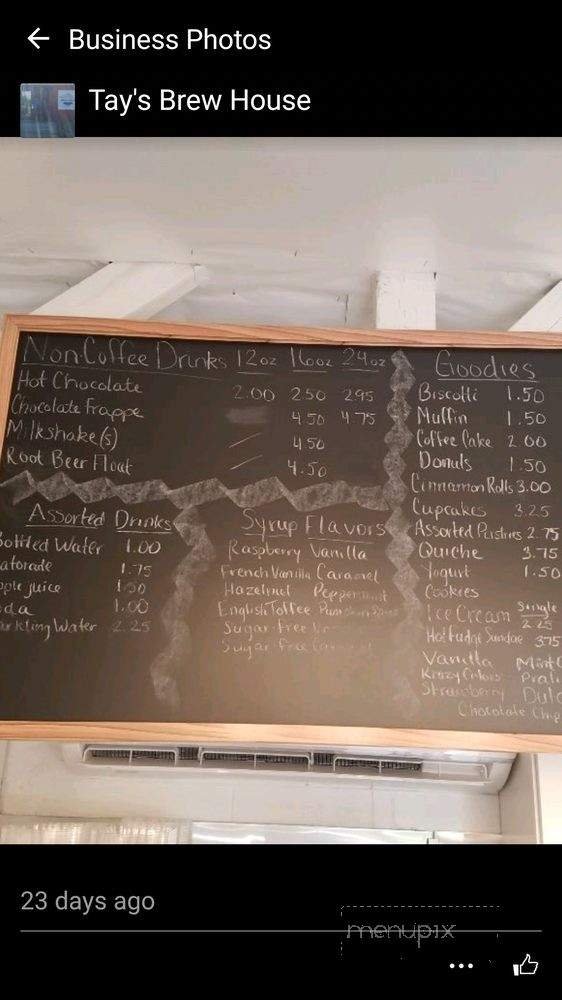 Business Photos
Tay's Brew House
Non-Coffee Drinks 12oz 16oz 24oz
Hot Chocolate 2.00 2.50 2.95
Chocolate Frappe 4.50 4.75
Milkshake(s) 4.50
Root Beer Float 4.50
Assorted Drinks
Bottled Water 1.00
atorade 1.75
pple juice 1.50
da 1.00
arkling Water 2.25
Syrup Flavors
Raspberry Vanilla
French Vanilla Caramel
Hazelnut Peppermint
English Toffee Pumpkin Spice
Sugar-Free
Sugar-Free
Goodies
Biscotti 1.50
Muffin 1.50
Coffee Cake 2.00
Donuts 1.50
Cinnamon Rolls 3.00
Cupcakes 3.25
Assorted Pastries 2.75
Quiche 3.75
Yogurt 1.50
Cookies
Ice Cream Single
2.25
Hot fudge Sundae 3.75
Vanilla Mint C
Krazy Colors Prali
Strawberry Dulc
Chocolate Chip
23 days ago
menupix